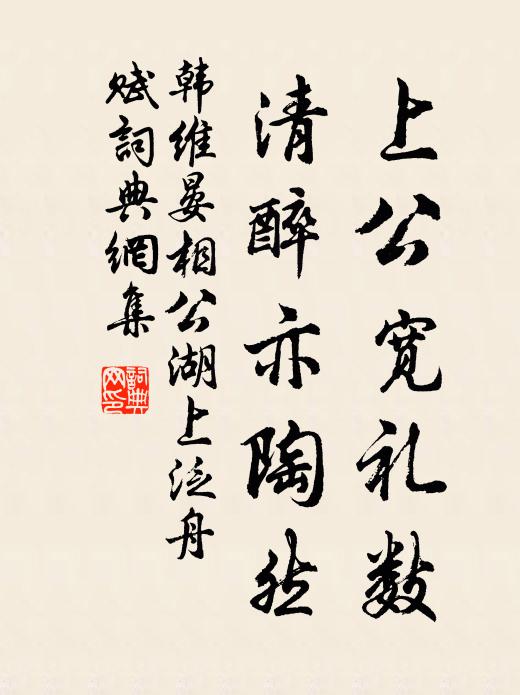 上公宽礼数
清醉亦陶然
韩维晏相公湖上泛舟
赋詞典網集
詞典
网印